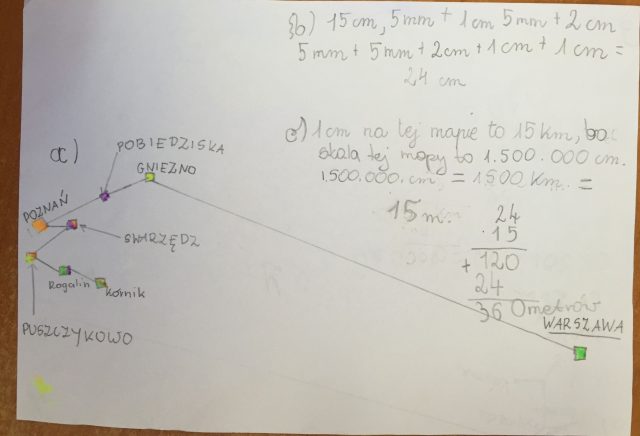 b) 15 cm, 5 mm + 1 cm 5 mm + 2 cm
5 mm + 5 mm + 2 cm + 1 cm + 1 cm =
24 cm
a)
POBIEDZISKA
GNIEZNO
POZNAŃ
SWARZĘDZ
Rogalin
Kórnik
PUSZCZYKOWO
WARSZAWA
c) 1 cm na tej mapie to 15 km, bo
skala tej mapy to 1.500.000 cm.
1.500.000.cm. = 1500 km. =
15 m.
24
· 15
+ 120
24
360 metrów